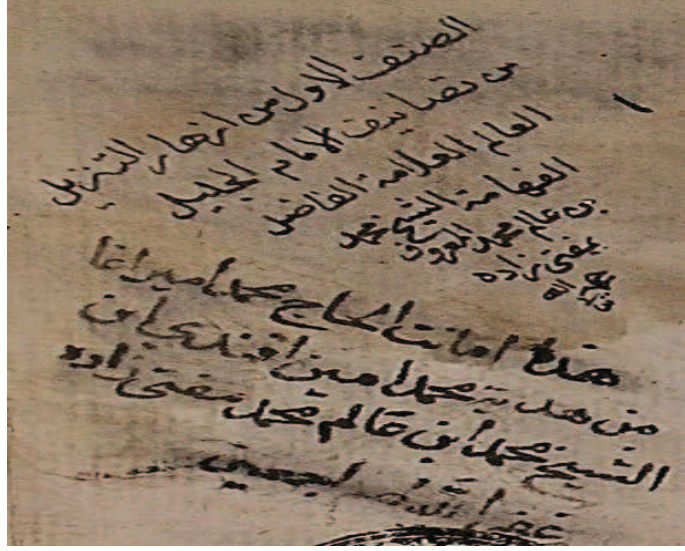 الصنف الاول من ازهار التنزيل
من تصانيف الامام الجليل
العالم العلامة الفاضل
الفهامة الشيخ محمد
بن عالم محمد المعروف
بمفتي زاده
هذا امانت الحاج محمد امين اغا
من هدية محمد امين افندي ابن
الشيخ محمد ابن عالم محمد مفتى زاده
غفر الله اجمعين